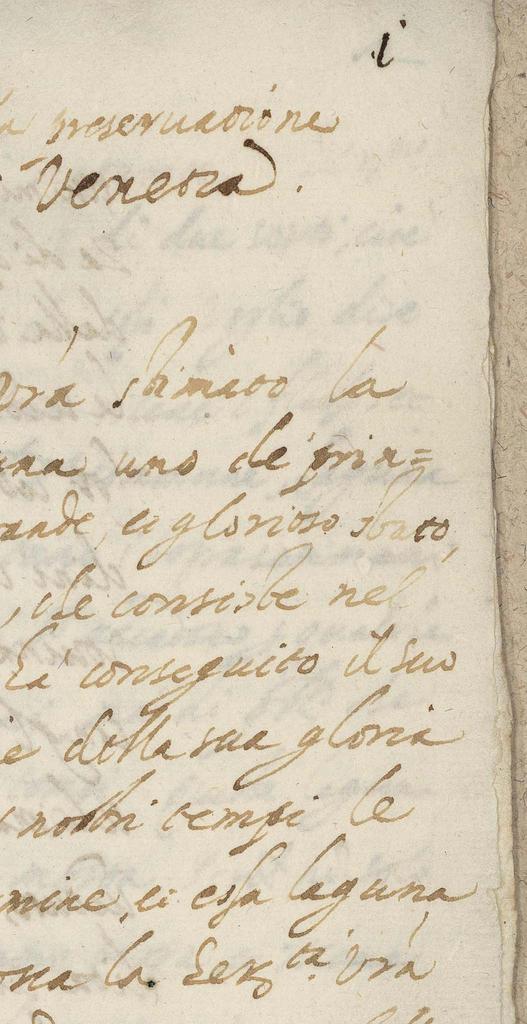 i
la preseruatione
Venetia.
Vrã stimato la
una uno de prin=
rande, et glorioso stato,
, che consiste nel
hà conseguito il suo
e della sua gloria
nostri tempi le
mine, et essa laguna
la Ser.tà Vrã